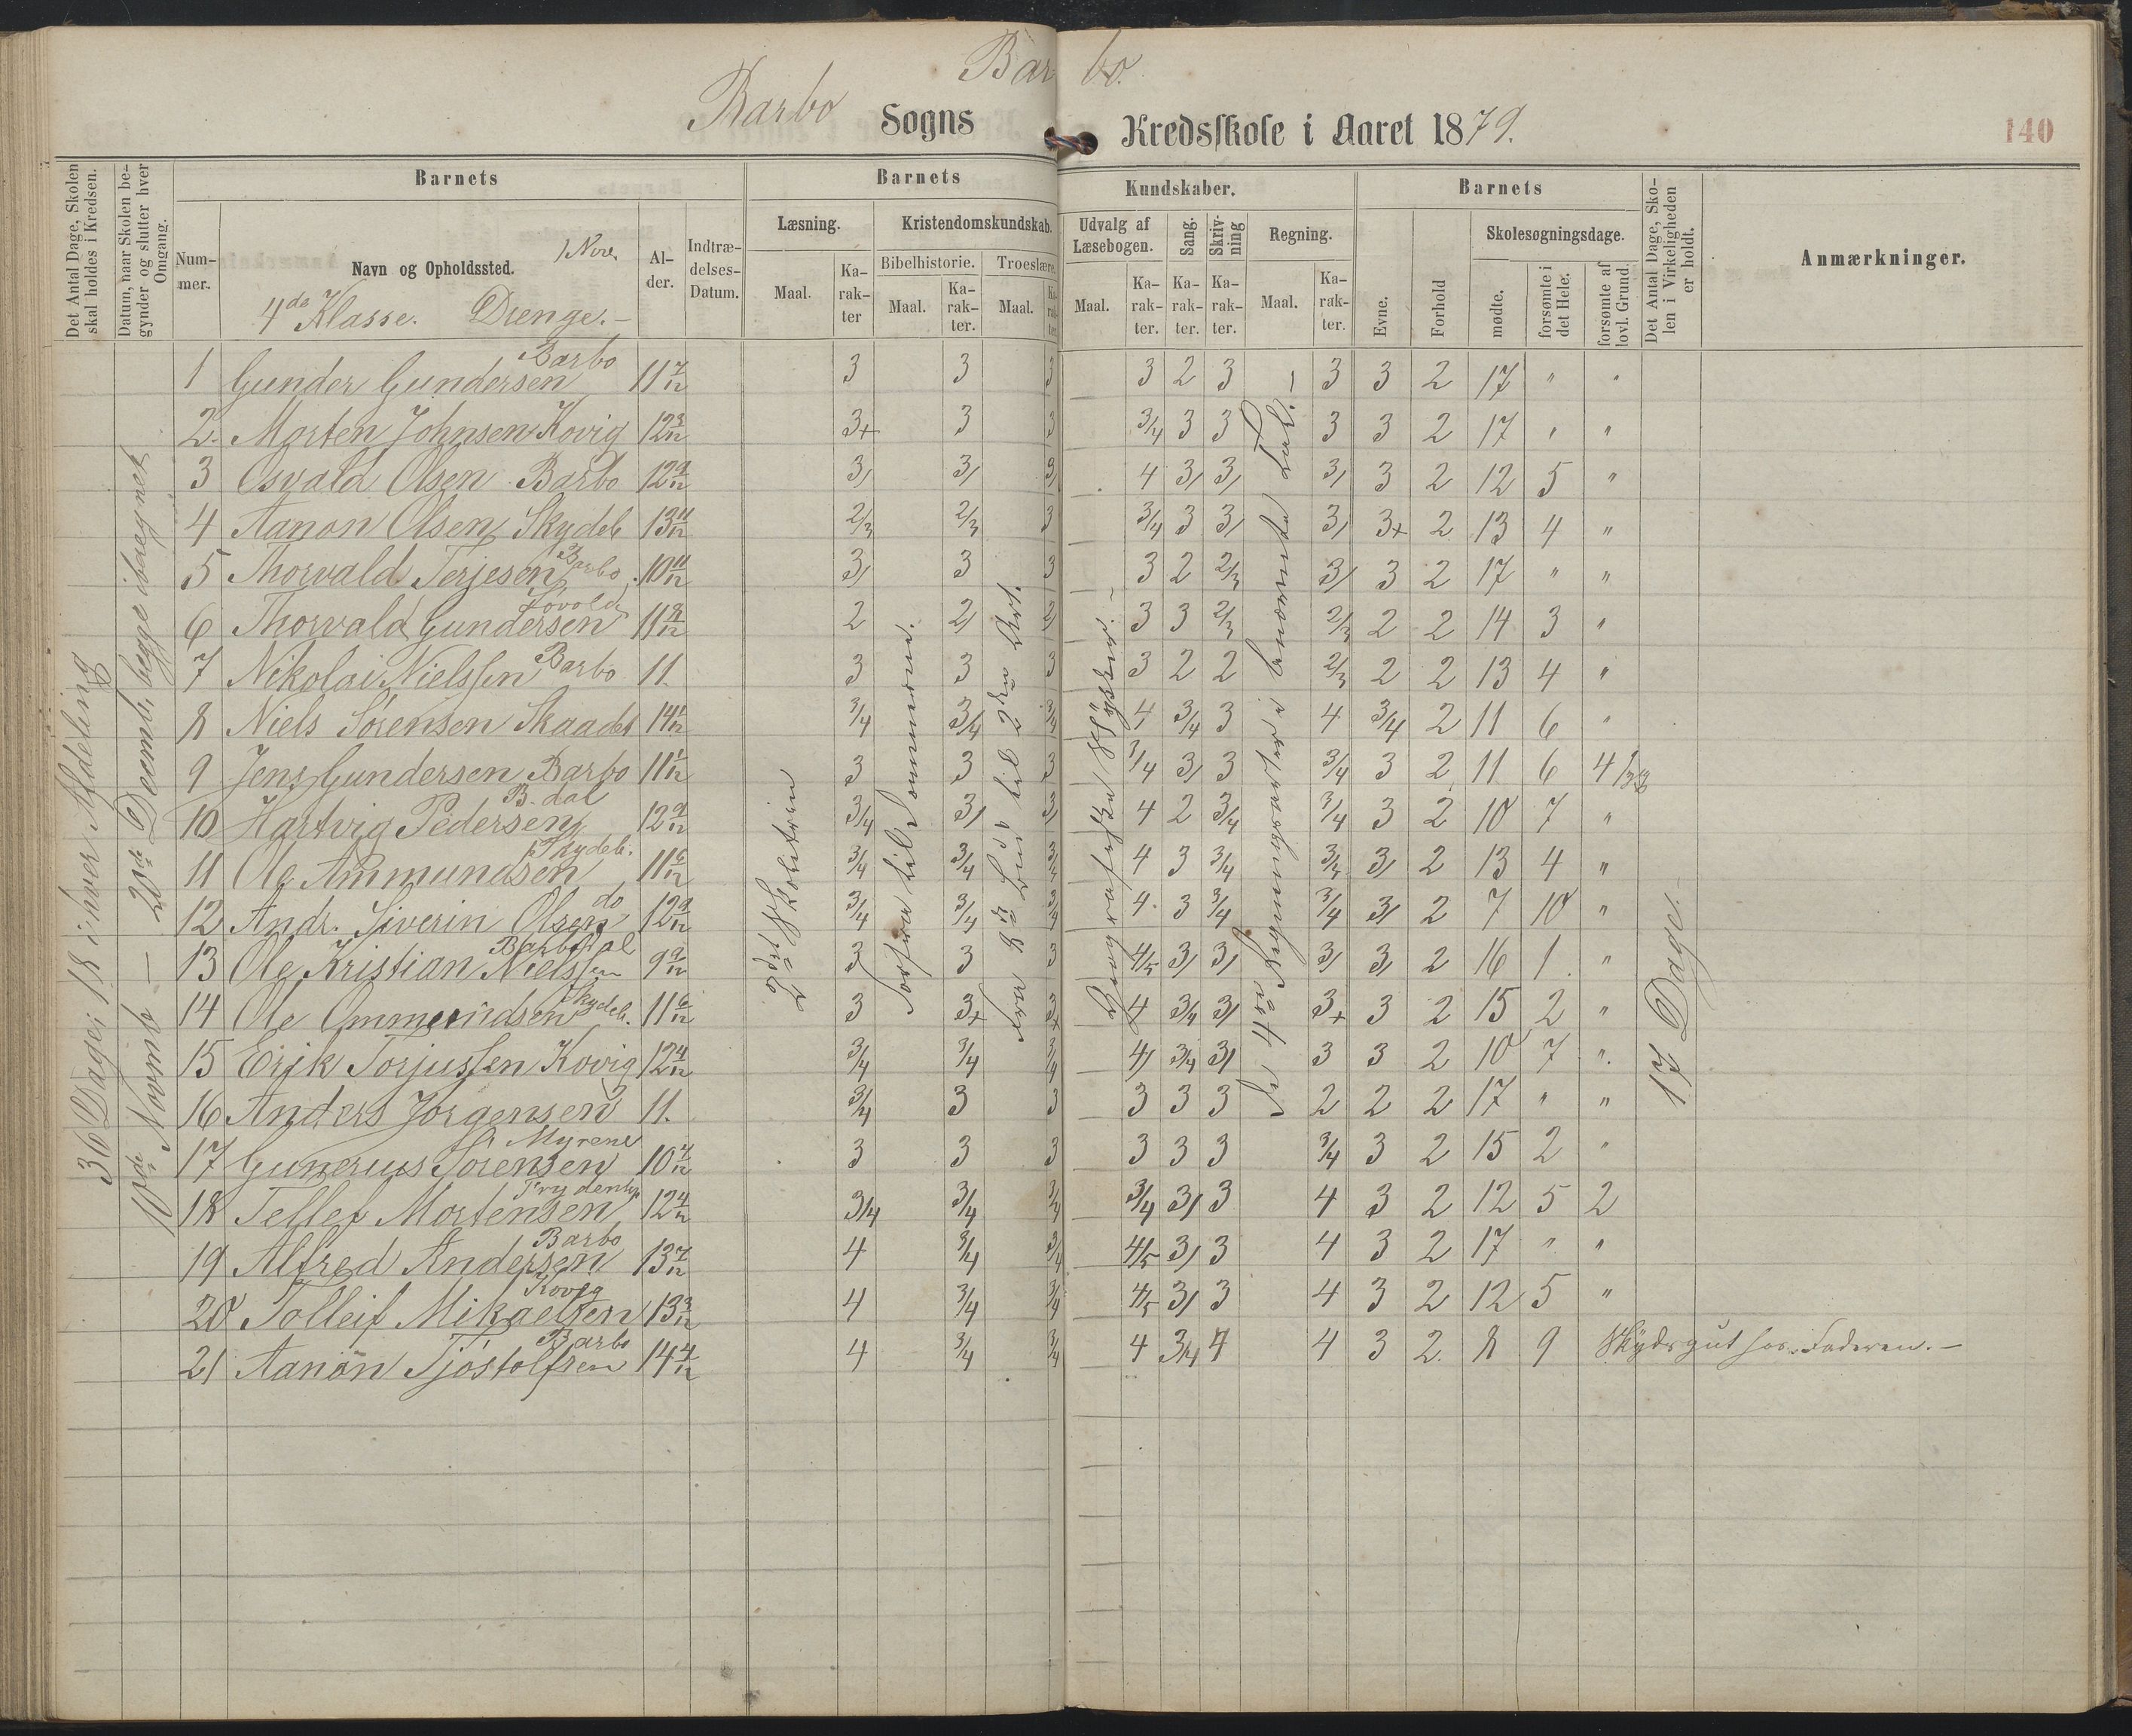 Barbo.
Barbo Sogns Kredsskole i Aaret 1879.
140
Det Antal Dage, Skolen skal holdes i Kredsen.
Datum, naar Skolen begynder og slutter hver Omgang.
Barnets
Barnets
Kundskaber.
Barnets
Det Antal Dage, Skolen i Virkeligheden er holdt.
Anmærkninger.
Nummer.
Navn og Opholdssted.
1 Nove.
4de Klasse. Drenge.-
Alder.
Indtrædelses-Datum.
Læsning.
Kristendomskundskab.
Udvalg af Læsebogen.
Sang.
Skrivning
Regning.
Evne.
Forhold
Skolesøgningsdage.
Bibelhistorie.
Troeslære.
Maal.
Karakter
Maal.
Karakter.
Maal.
Karakter.
Maal.
Karakter.
Karakter.
Karakter.
Maal.
Karakter.
mødte.
forsømte i det Hele.
forsømte af lovl. Grund.
36 Dage: 18 i hver Afdeling
10de Novemb — 20de Decemb. begge iberegnet
1 Gunder Gundersen Barbo 11 7/12 3 3 3 3 2 3 3 3 2 17 " "
2. Morten Johnsen Kovig 12 3/12 3+ 3 3 3/4 3 3 3 3 2 17 " "
3 Osvald Olsen Barbo 12 9/12 3/ 3/ 3/ 4 3/ 3/ 3/ 3 2 12 5 "
4 Aanon Olsen Skydeb 13 11/12 2/3 2/3 3 3/4 3 3/ 3/ 3+ 2 13 4 "
5 Thorvald Terjesen Barbo 10 11/12 3/ 3 3 3 2 2/3 3/ 3 2 17 " "
6 Thorvald Gundersen Lövold 11 8/12 2 2/ 2/ 3 3 2/3 2/3 2 2 14 3 "
7 Nikolai Nielssen Barbo 11. 3 3 3 3 2 2 2/3 2 2 13 4 "
8 Niels Sörensen Skaadet 14 1/12 3/4 3/4 3/4 4 3/4 3 4 3/4 2 11 6 "
9 Jens Gundersen Barbo 11 1/12 3 3 3 3/4 3/ 3 3/4 3 2 11 6 4
10 Hartvig Pedersen B. dal 12 9/12 3/4 3/ 3/ 4 2 3/4 3/4 3 2 10 7 "
11 Ole Ammundsen Skydeb. 11 6/12 3/4 3/4 3/4 4 3 3/4 3/4 3/ 2 13 4 "
12 Andr. Siverin Olsen do 12 9/12 3/4 3/4 3/4 4 3 3/4 3/4 3/ 2 7 10 "
13 Ole Kristian Nielssen Barbodal 9 9/12 3 3 3 4/5 3/ 3/ 3/ 3/ 2 16 1 "
14 Ole Ommundsen Skydeb. 11 6/12 3 3+ 3+ 4 3/4 3/ 3+ 3 2 15 2 "
15 Erik Torjussen Kovig 12 4/12 3/4 3/4 3/4 4/ 3/4 3/ 3 3 2 10 7 "
16 Anders Jorgensen 11. 3/4 3 3 3 3 3 2 2 2 17 " "
17 Gunerius Sörensen Myrene 10 4/12 3 3 3 3 3 3 3/4 3 2 15 2 "
18 Tellef Mortensen 12 4/12 3/4 3/4 3/4 3/4 3/ 3 4 3 2 12 5 2
19 Alfred Andersen Barbo 13 7/12 4 3/4 3/4 4/5 3/ 3 4 3 2 17 " "
20 Tolleif Mikaelsen Kovig 13 3/12 4 3/4 3/4 4/5 3/ 3 4 3 2 12 5 "
21 Aanon Tjöstolfsen Barbo 14 4/12 4 3/4 3/4 4 3/4 4 4 3 2. 8 9 Skydsgut hos Faderen.-
2det Skoletrin
Forfra til Sommeren.
Fra 8de Bud til 2den Art.
Geografiske Stykker.-
De 4 Regningsarter i benævnte Tal.-
17 Dage.